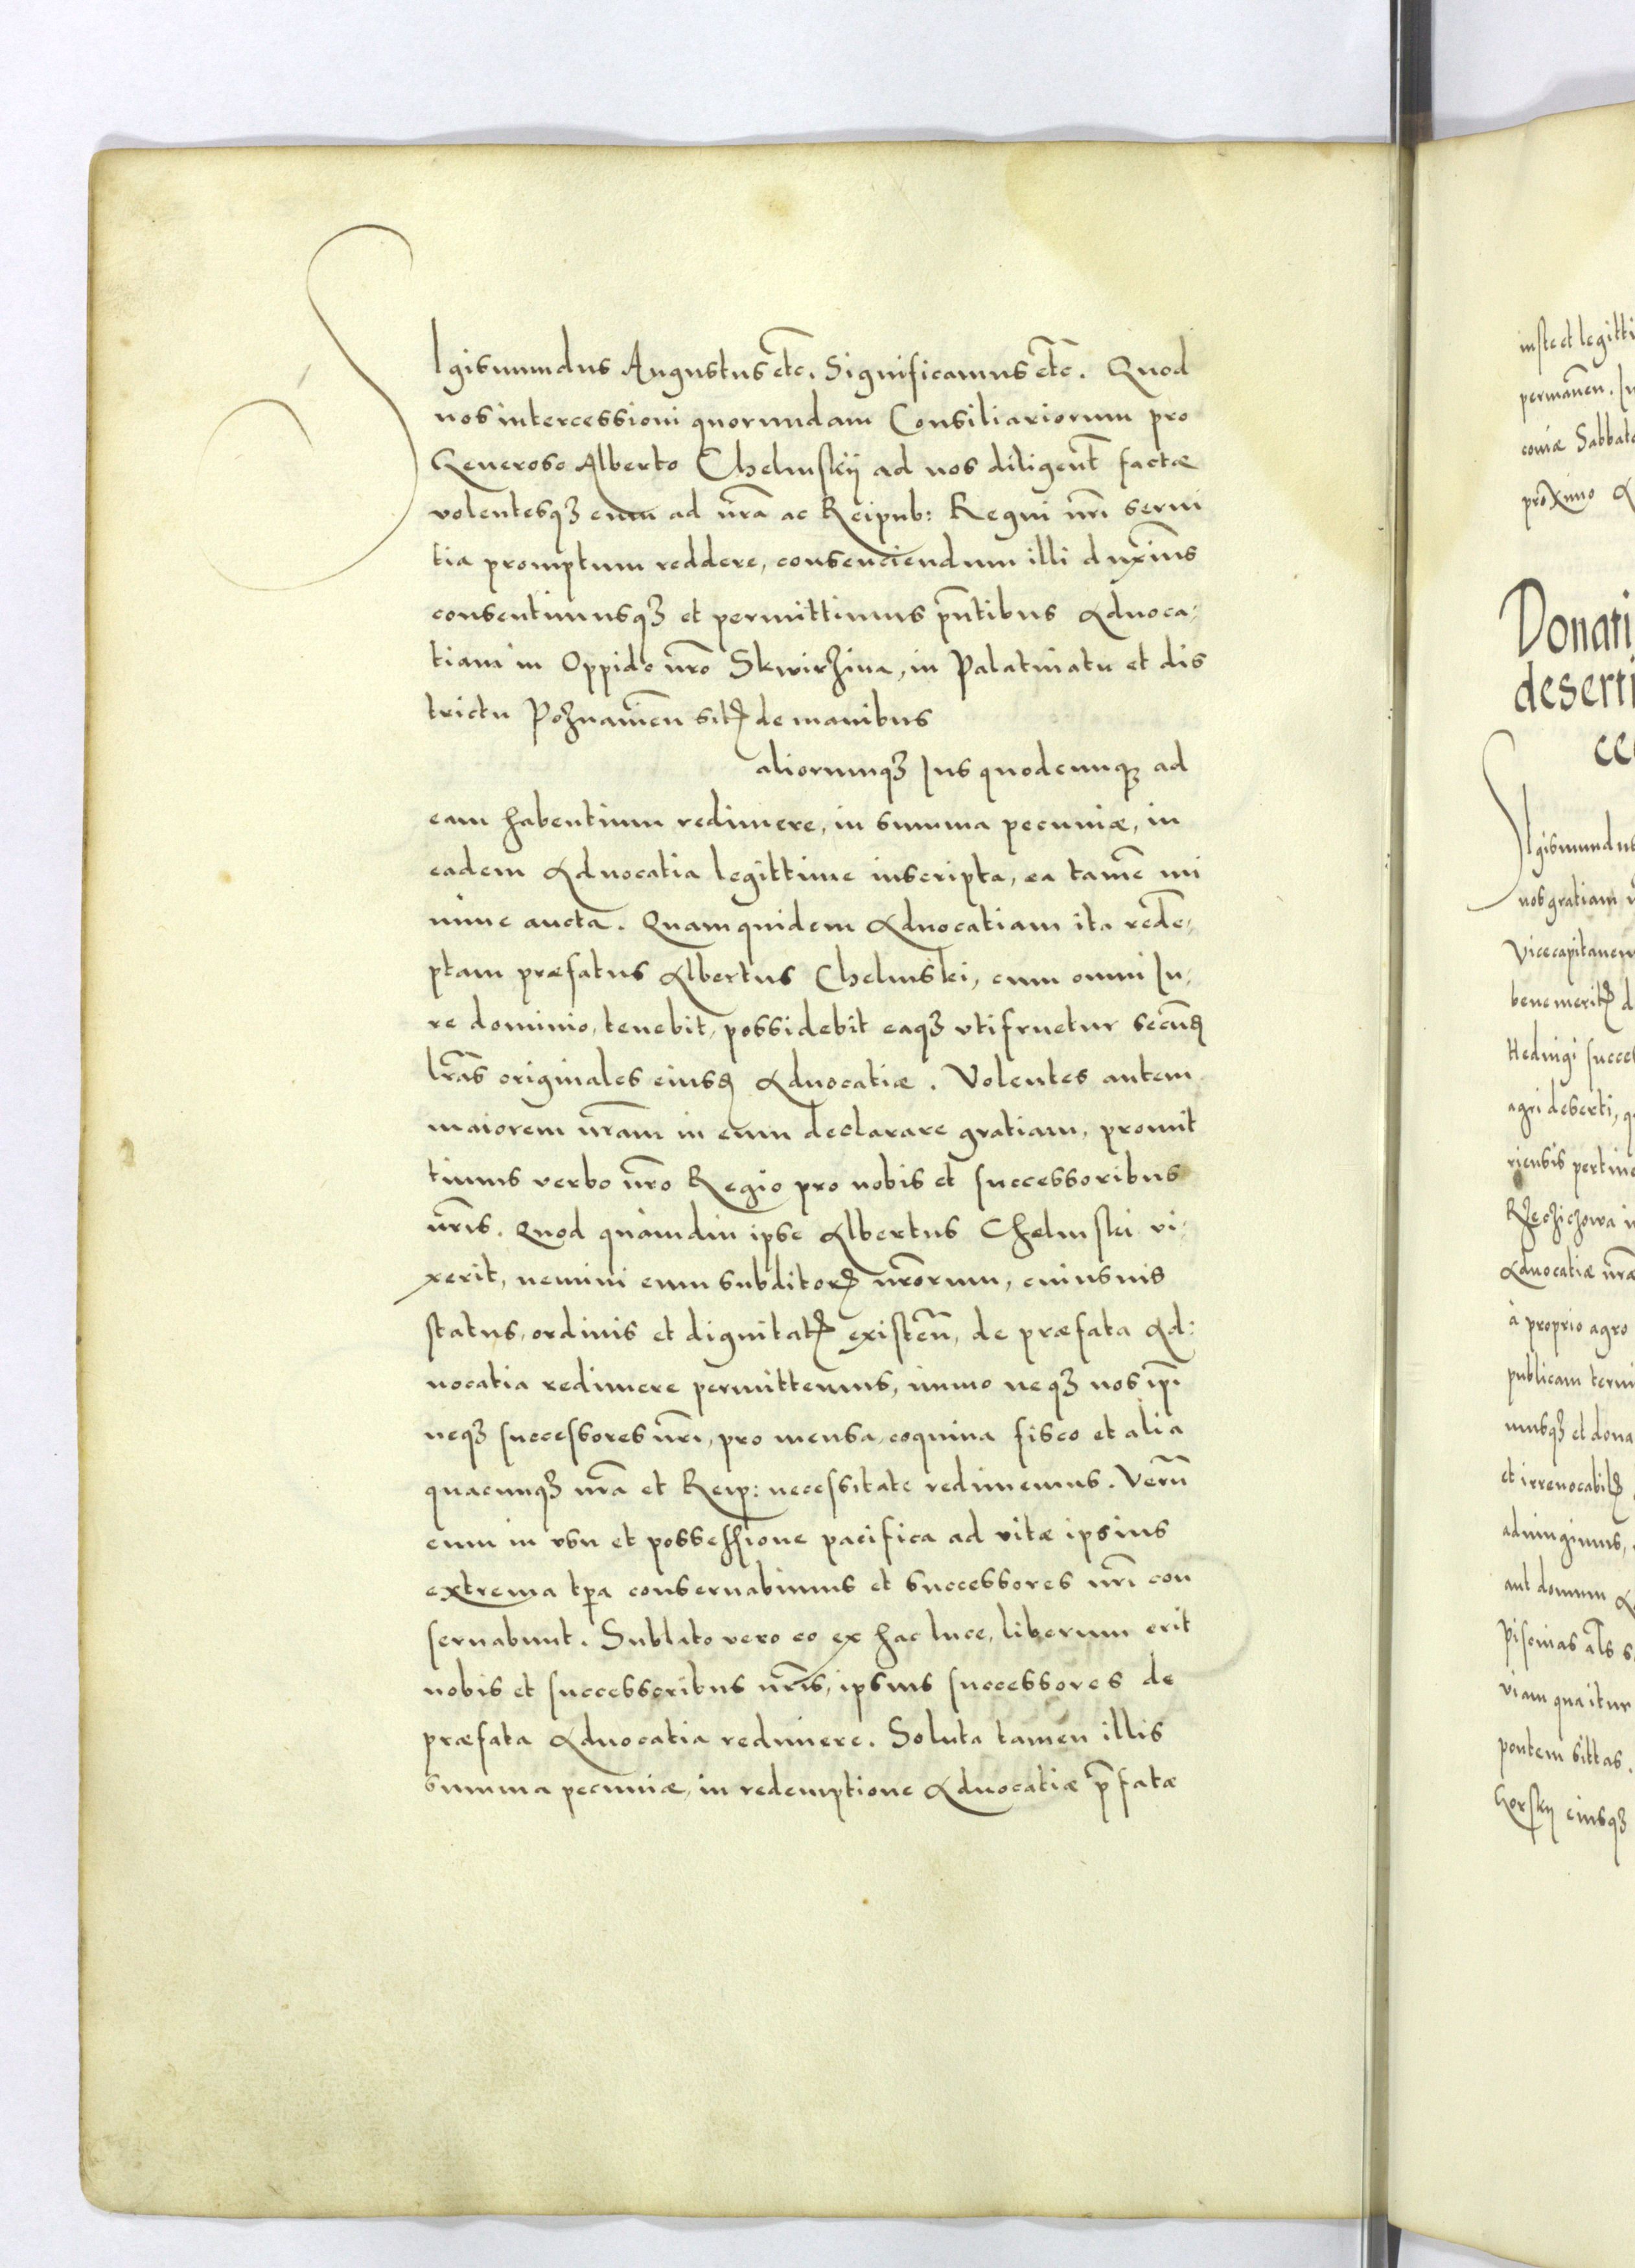 Sigismundus Augustus etc̄. Significamus etc̄. Quod
nos intercessioni quorundam Consiliariorum pro
Generoso Alberto Chelmskij ad nos diligent̄ factæ
volentesqꝫ eum ad nr̄a ac Reipub: Regni nr̄i serui
tia promptum reddere, consenciendum illi duxim̄us
consentimusqꝫ et permittimus pn̄tibus Aduoca,
tiam in Oppido nr̄o Skwirzina, in Palatinatu et dis
trictu Poznanien̄ sitꝭ de manibus
aliorumqꝫ Jus quodcunqꝫ ad
eam habentium redimere, in summa pecuniæ, in
eadem Aduocatia legittime inscripta, ea tamē mi
nime aucta. Quamquidem Aduocatiam ita redē,
ptam præfatus Albertus Chelmski, cum omni Ju,
re dominio, tenebit, possidebit eaqꝫ vtifruetur secun̄ꝫ
lr̄as originales eiusꝫ Aduocatiæ. Volentes autem
maiorem nr̄am in eum declarare gratiam, promit
timus verbo nr̄o Regio pro nobis et successoribus
nr̄is. Quod quamdiu ipse Albertus Chelmski vi,
xerit, nemini eum subditorꝫ nr̄orum, cuiusuis
status, ordinis et dignitatꝭ existen̄, de præfata Ad:
uocatia redimere permittemus, immo neqꝫ nos ip̄i
neqꝫ successores nr̄i, pro mensa, coquina fisco et alia
quacunqꝫ nr̄a et Reip: necessitate redimemus. Verū
eum in vsu et possessione pacifica ad vitæ ipsius
extrema tp̄a conseruabimus et successores nr̄i con
seruabunt. Sublato vero eo ex hac luce, liberum erit
nobis et successoribus nr̄is, ipsius successores de
præfata Aduocatia redimere. Soluta tamen illis
summa pecuniæ, in redemptione Aduocatiæ p̄fatæ
iuste et legitti
permanen̄. Ju
couiæ Sabbato
proximo
Donati
deserti
Sigismundus
nos gratiam
Vicecapitaneu
benemeritꝭ d
Heduigi succes
agri deserti, q
riensis pertine
Rzeczicowa
Aduocatiæ nr̄æ
à proprio agro
publicam termi
musqꝫ et dona
et irreuocabilꝭ
adiungimus,
aut domum
Piscinas al̄s s
viam qua itur
pontem sittas.
Gorskij eiusqꝫ